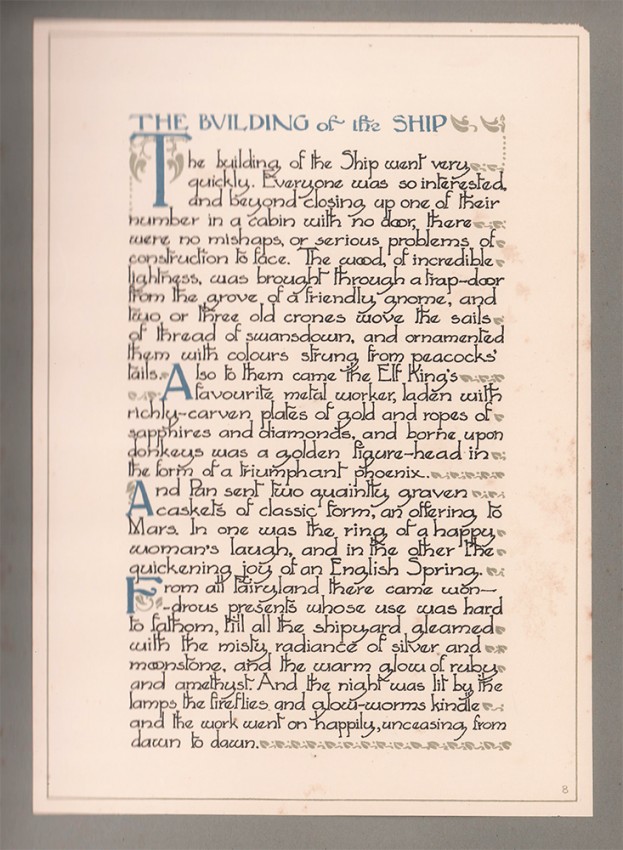 THE BUILDING of the SHIP
The building of the Ship went very
quickly. Everyone was so interested,
and beyond closing up one of their
number in a cabin with no door, there
were no mishaps, or serious problems of
construction to face. The wood, of incredible
lightness, was brought through a trap-door
from the grove of a friendly gnome, and
two or three old crones wove the sails
of thread of swansdown, and ornamented
them with colours strung from peacocks'
tails. Also to them came the Elf King's
favourite metal worker, laden with
richly-carven plates of gold and ropes of
sapphires and diamonds, and borne upon
donkeys was a golden figure-head in
the form of a triumphant phoenix..
And Pan sent two quaintly graven
caskets of classic form, an offering to
Mars. In one was the ring of a happy
woman's laugh, and in the other the
quickening joy of an English Spring.
From all Fairyland there came won-
-drous presents whose use was hard
to fathom, till all the shipyard gleamed
with the misty radiance of silver and
moonstone, and the warm glow of ruby
and amethyst. And the night was lit by the
lamps the fireflies and glow-worms kindle
and the work went on happily, unceasing, from
dawn to dawn.
8